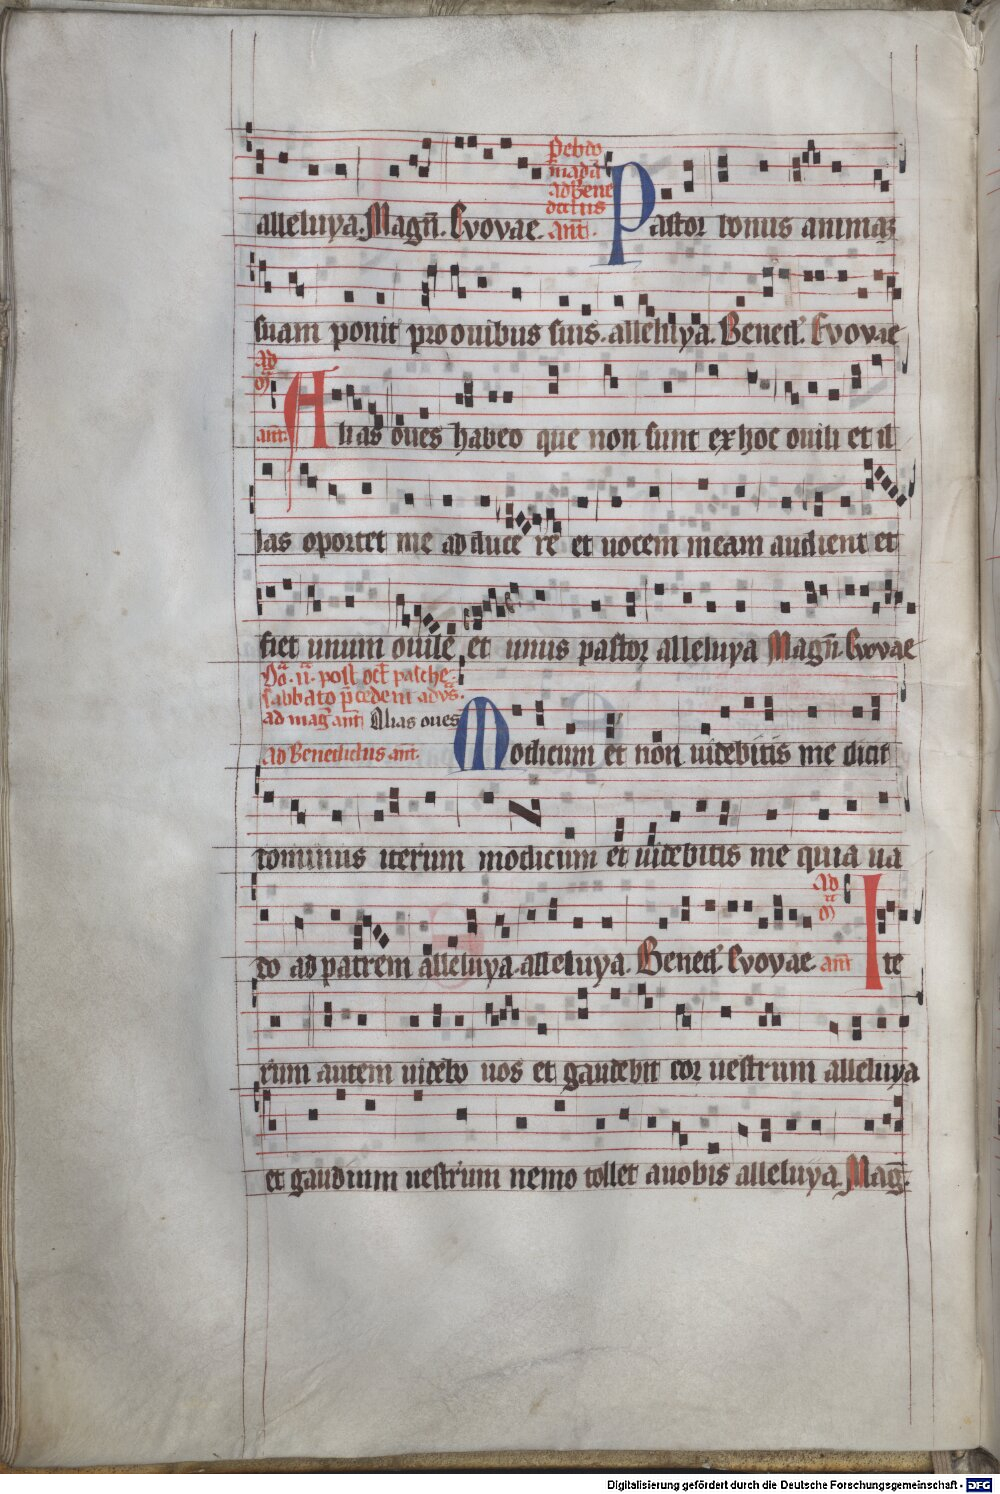 p̄ ebdo
madā
ad Bene
dictus
alleluya. Magn̄. Evovae. ant̄. Pastor bonus animaꝫ
suam ponit pro ouibus suis. alleluya. Bened̄. Evovae
Ad
ant̄. Alias oues habeo que non sunt ex hoc ouili et il
las oportet me adduce re et uocem meam audient et
fiet unum ouile et unus pastor alleluya Magn̄. Evovae
Do. ii. post oct̄ pasche.
sabbato p̄cedenti ad vs̄.
ad maḡ ant̄ Alias oues
ad Benedictus ant̄. Modicum et non uidebitis me dicit
dominus iterum modicum et uidebitis me quia ua
Ad
do ad patrem alleluya. alleluya. Bened̄. Evovae ant̄ Ite
rum autem uidebo uos et gaudebit cor uestrum alleluya
et gaudium uestrum nemo tollet a uobis alleluya. Maḡ.
Digitalisierung gefördert durch die Deutsche Forschungsgemeinschaft - DFG